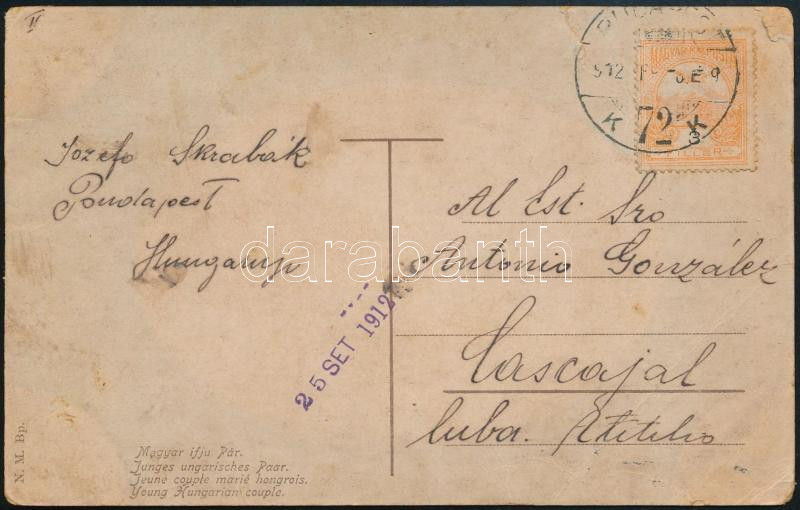 II
BUDAPEST
912
K 72 K
3
MAGYAR KIR. POSTA
FILLÉR
Jozefo Skrabák
Budapest
Hungarujo
Al Est. Sro
Antonio González
Cascajal
Cuba.
25 SET 1912
darabanth
© www.darabanth.com
N. M. Bp.
Magyar ifju Pár.
Junges ungarisches Paar.
Jeune couple marié hongrois.
Young Hungarian couple.